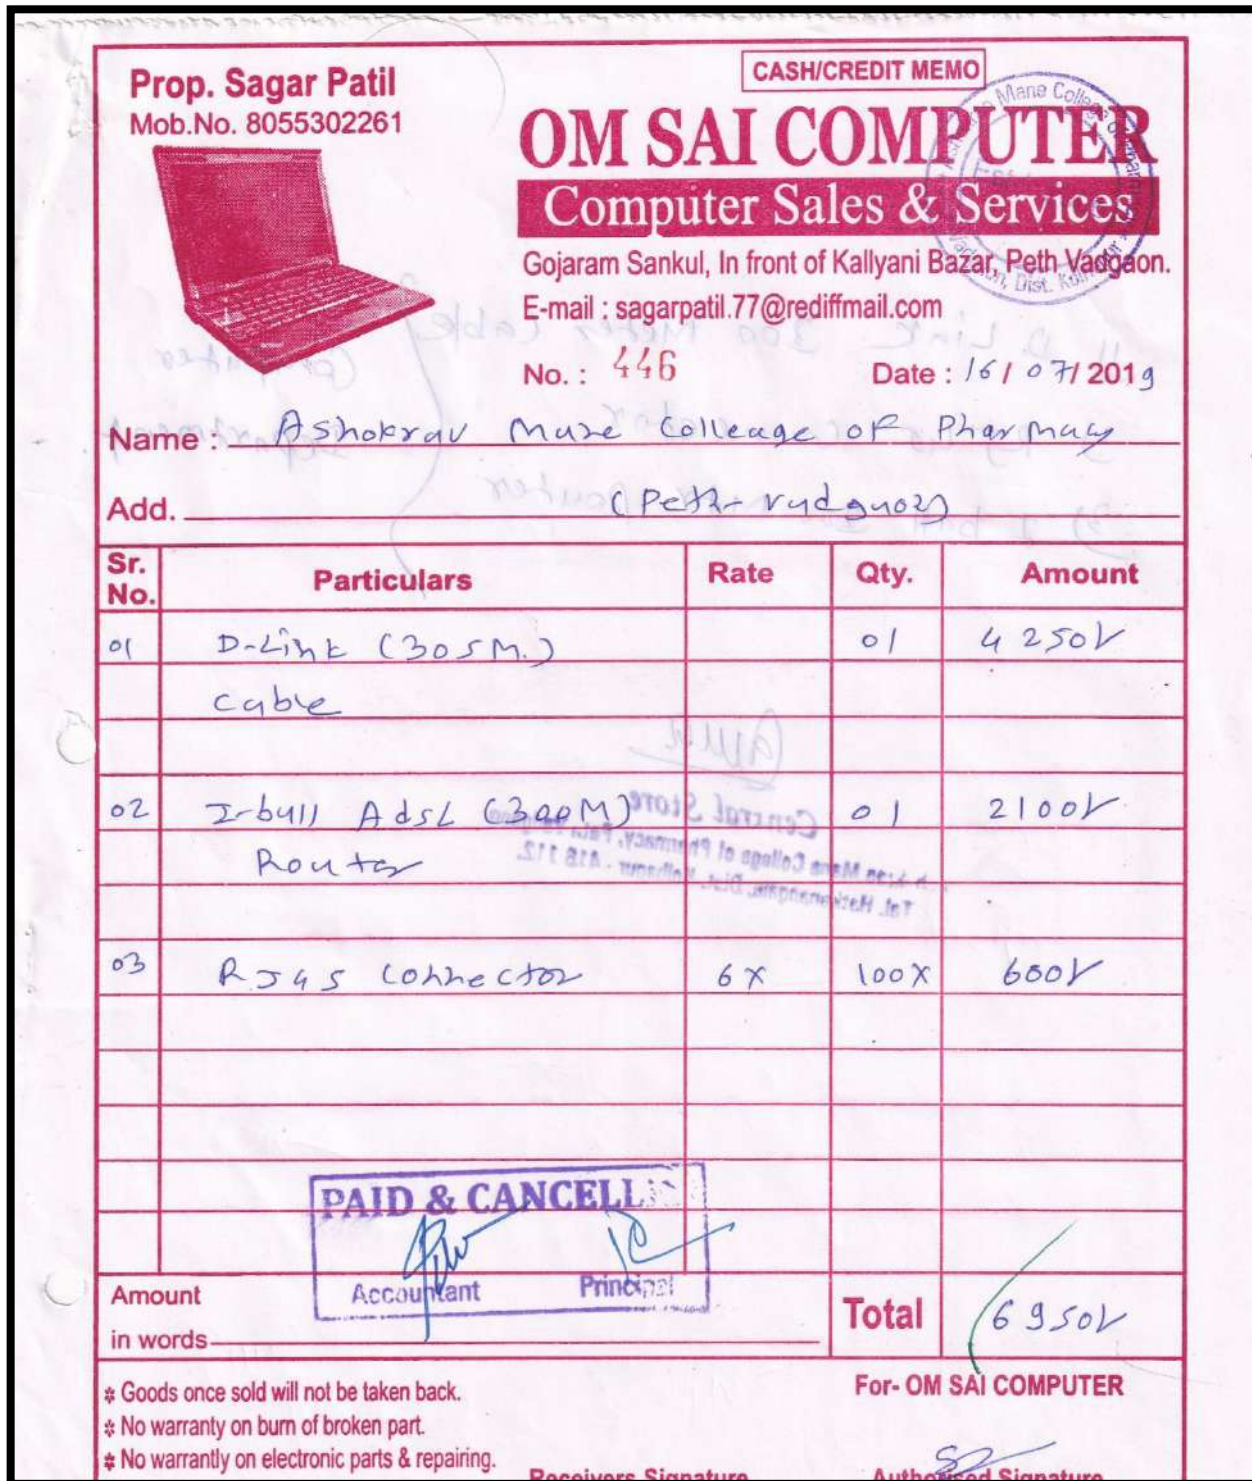 Prop. Sagar Patil
Mob.No. 8055302261
CASH/CREDIT MEMO
OM SAI COMPUTER
Computer Sales & Services
Gojaram Sankul, In front of Kallyani Bazar, Peth Vadgaon.
E-mail : sagarpatil.77@rediffmail.com
No. : 446 Date : 16 / 07 / 2019
Name : Ashokrav Mane Colleage of Pharmacy
Add. (Peth-
Sr. No. Particulars Rate Qty. Amount
01 D-Link (305M.) 01 4250/
Cable
02 I-ball Adsl (300M) 01 2100/
Router
03 RJ45 Connector 6X 100X 600/
PAID & CANCELL
Accountant Principal
Amount
in words
Total 6950/
* Goods once sold will not be taken back.
* No warranty on burn of broken part.
* No warrantly on electronic parts & repairing.
For- OM SAI COMPUTER
Receivers Signature Authorised Signature